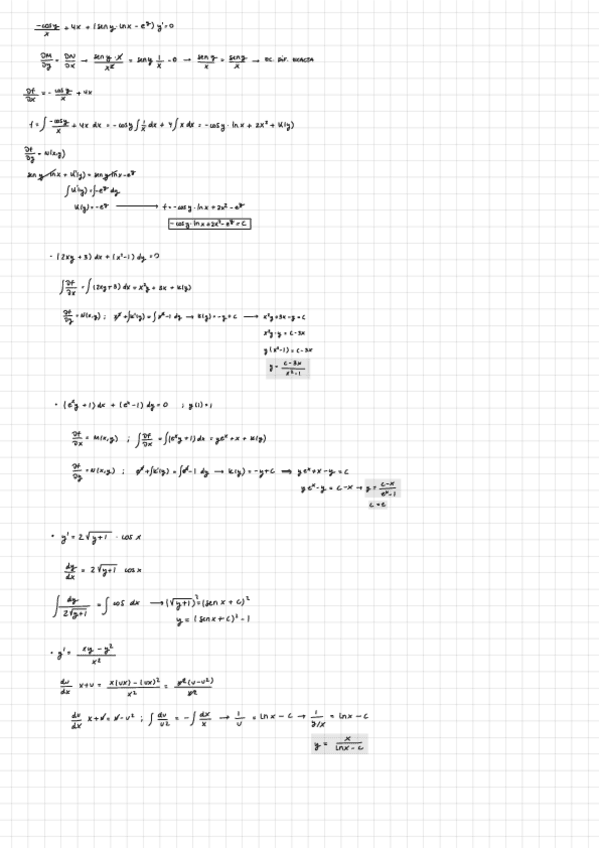 -cos y/x + 4x + (sen y · ln x - e^y) y' = 0
∂M/∂y = ∂N/∂x → sen y · x/x² = sen y 1/x - 0 → sen y/x = sen y/x → EC. DIF. EXACTA
∂f/∂x = - cos y/x + 4x
f = ∫ -cos y/x + 4x dx = -cos y ∫ 1/x dx + 4 ∫ x dx = -cos y · ln x + 2x² + k(y)
∂f/∂y = N(x,y)
sen y ln x + k'(y) = sen y ln x - e^y
∫ k'(y) = ∫ -e^y dy
k(y) = -e^y → f = -cos y · ln x + 2x² - e^y
-cos y · ln x + 2x² - e^y = C
· (2xy + 3) dx + (x² - 1) dy = 0
∫ ∂f/∂x = ∫ (2xy + 3) dx = x²y + 3x + k(y)
∂f/∂y = N(x,y) ; x² + ∫ k'(y) = ∫ x² - 1 dy → k(y) = -y + C → x²y + 3x - y = C
x²y - y = C - 3x
y (x² - 1) = C - 3x
y = C - 3x / x² - 1
· (e^x y + 1) dx + (e^x - 1) dy = 0 ; y(1) = 1
∂f/∂x = M(x,y) ; ∫ ∂f/∂x = ∫ (e^x y + 1) dx = ye^x + x + k(y)
∂f/∂y = N(x,y) ; e^x + ∫ k'(y) = ∫ e^x - 1 dy → k(y) = -y + C → ye^x + x - y = C
ye^x - y = C - x → y = C - x / e^x - 1
C = e
· y' = 2 √y+1 · cos x
dy/dx = 2 √y+1 cos x
∫ dy / 2√y+1 = ∫ cos dx → (√y+1)² = (sen x + C)²
y = (sen x + C)² - 1
· y' = xy - y² / x²
du/dx x + u = x(ux) - (ux)² / x² = x²(u - u²) / x²
du/dx x + u = u - u² ; ∫ du/u² = - ∫ dx/x → 1/u = ln x - C → 1 / y/x = ln x - C
y = x / ln x - C